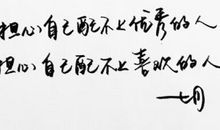 担心自己配不上优秀的人
担心自己配不上喜欢的人
一七月